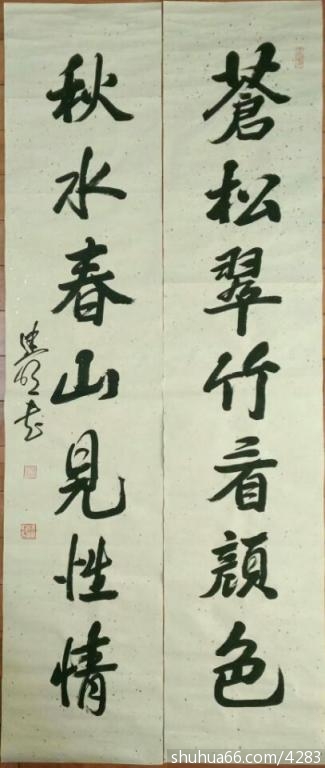 蒼松翠竹看顏色
秋水春山見性情
shuhua66.com/4283